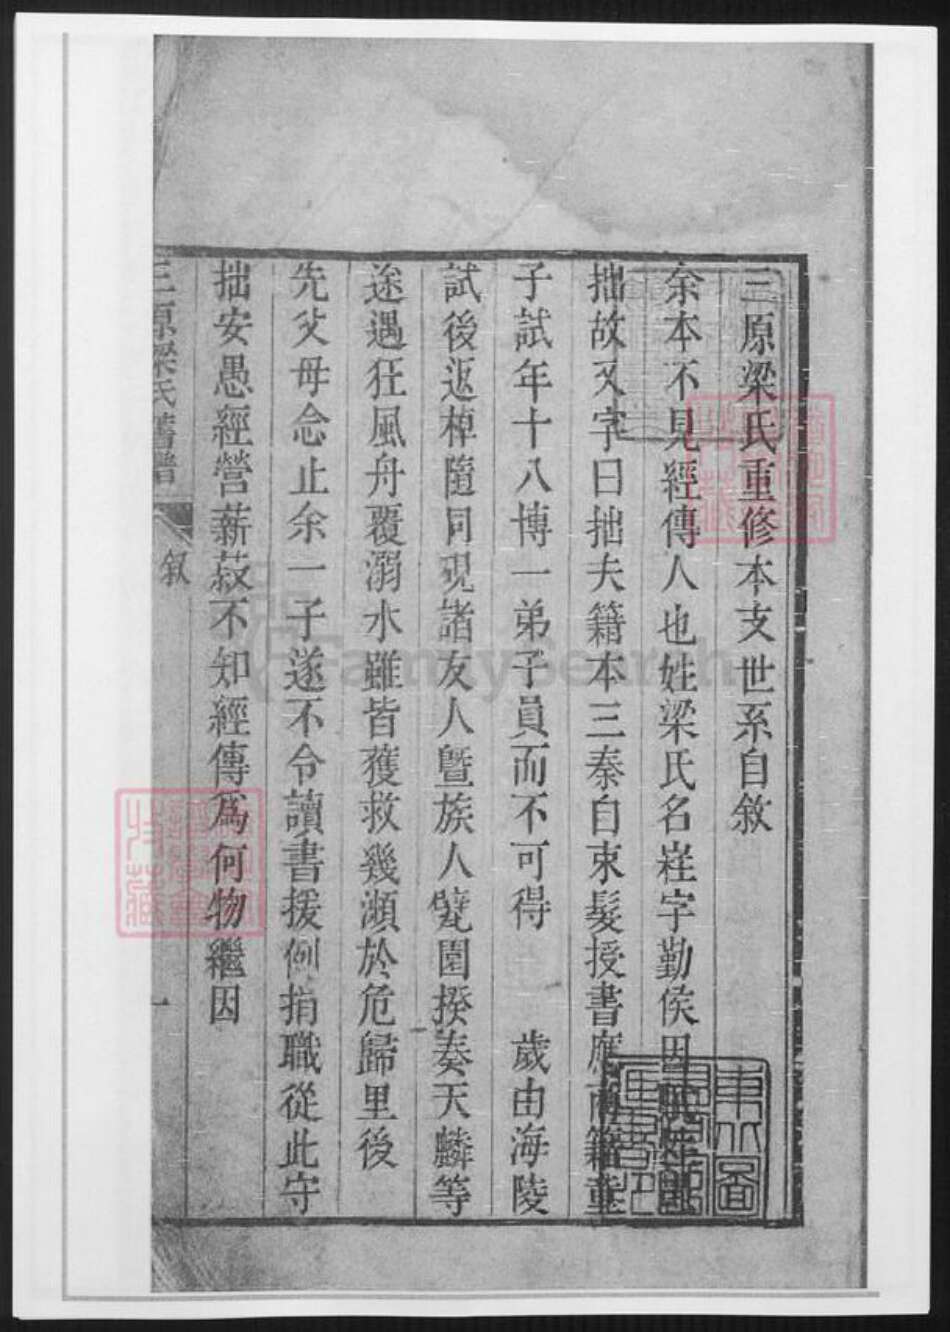 三原梁氏重修本支世系自敘
余本不見經傳人也姓梁氏名嵀字勤侯因
拙故又字曰拙夫籍本三秦自束髮授書應商籍童
子試年十八博一弟子員而不可得 歲由海陵
試後返棹隨同硯諸友人暨族人甓園揆奏天麟等
途遇狂風舟覆溺水雖皆獲救幾瀕於危歸里後
先父母念止余一子遂不令讀書援例捐職從此守
拙安愚經營薪菽不知經傳為何物繼因
三原梁氏舊譜 叙 一
FamilySearch